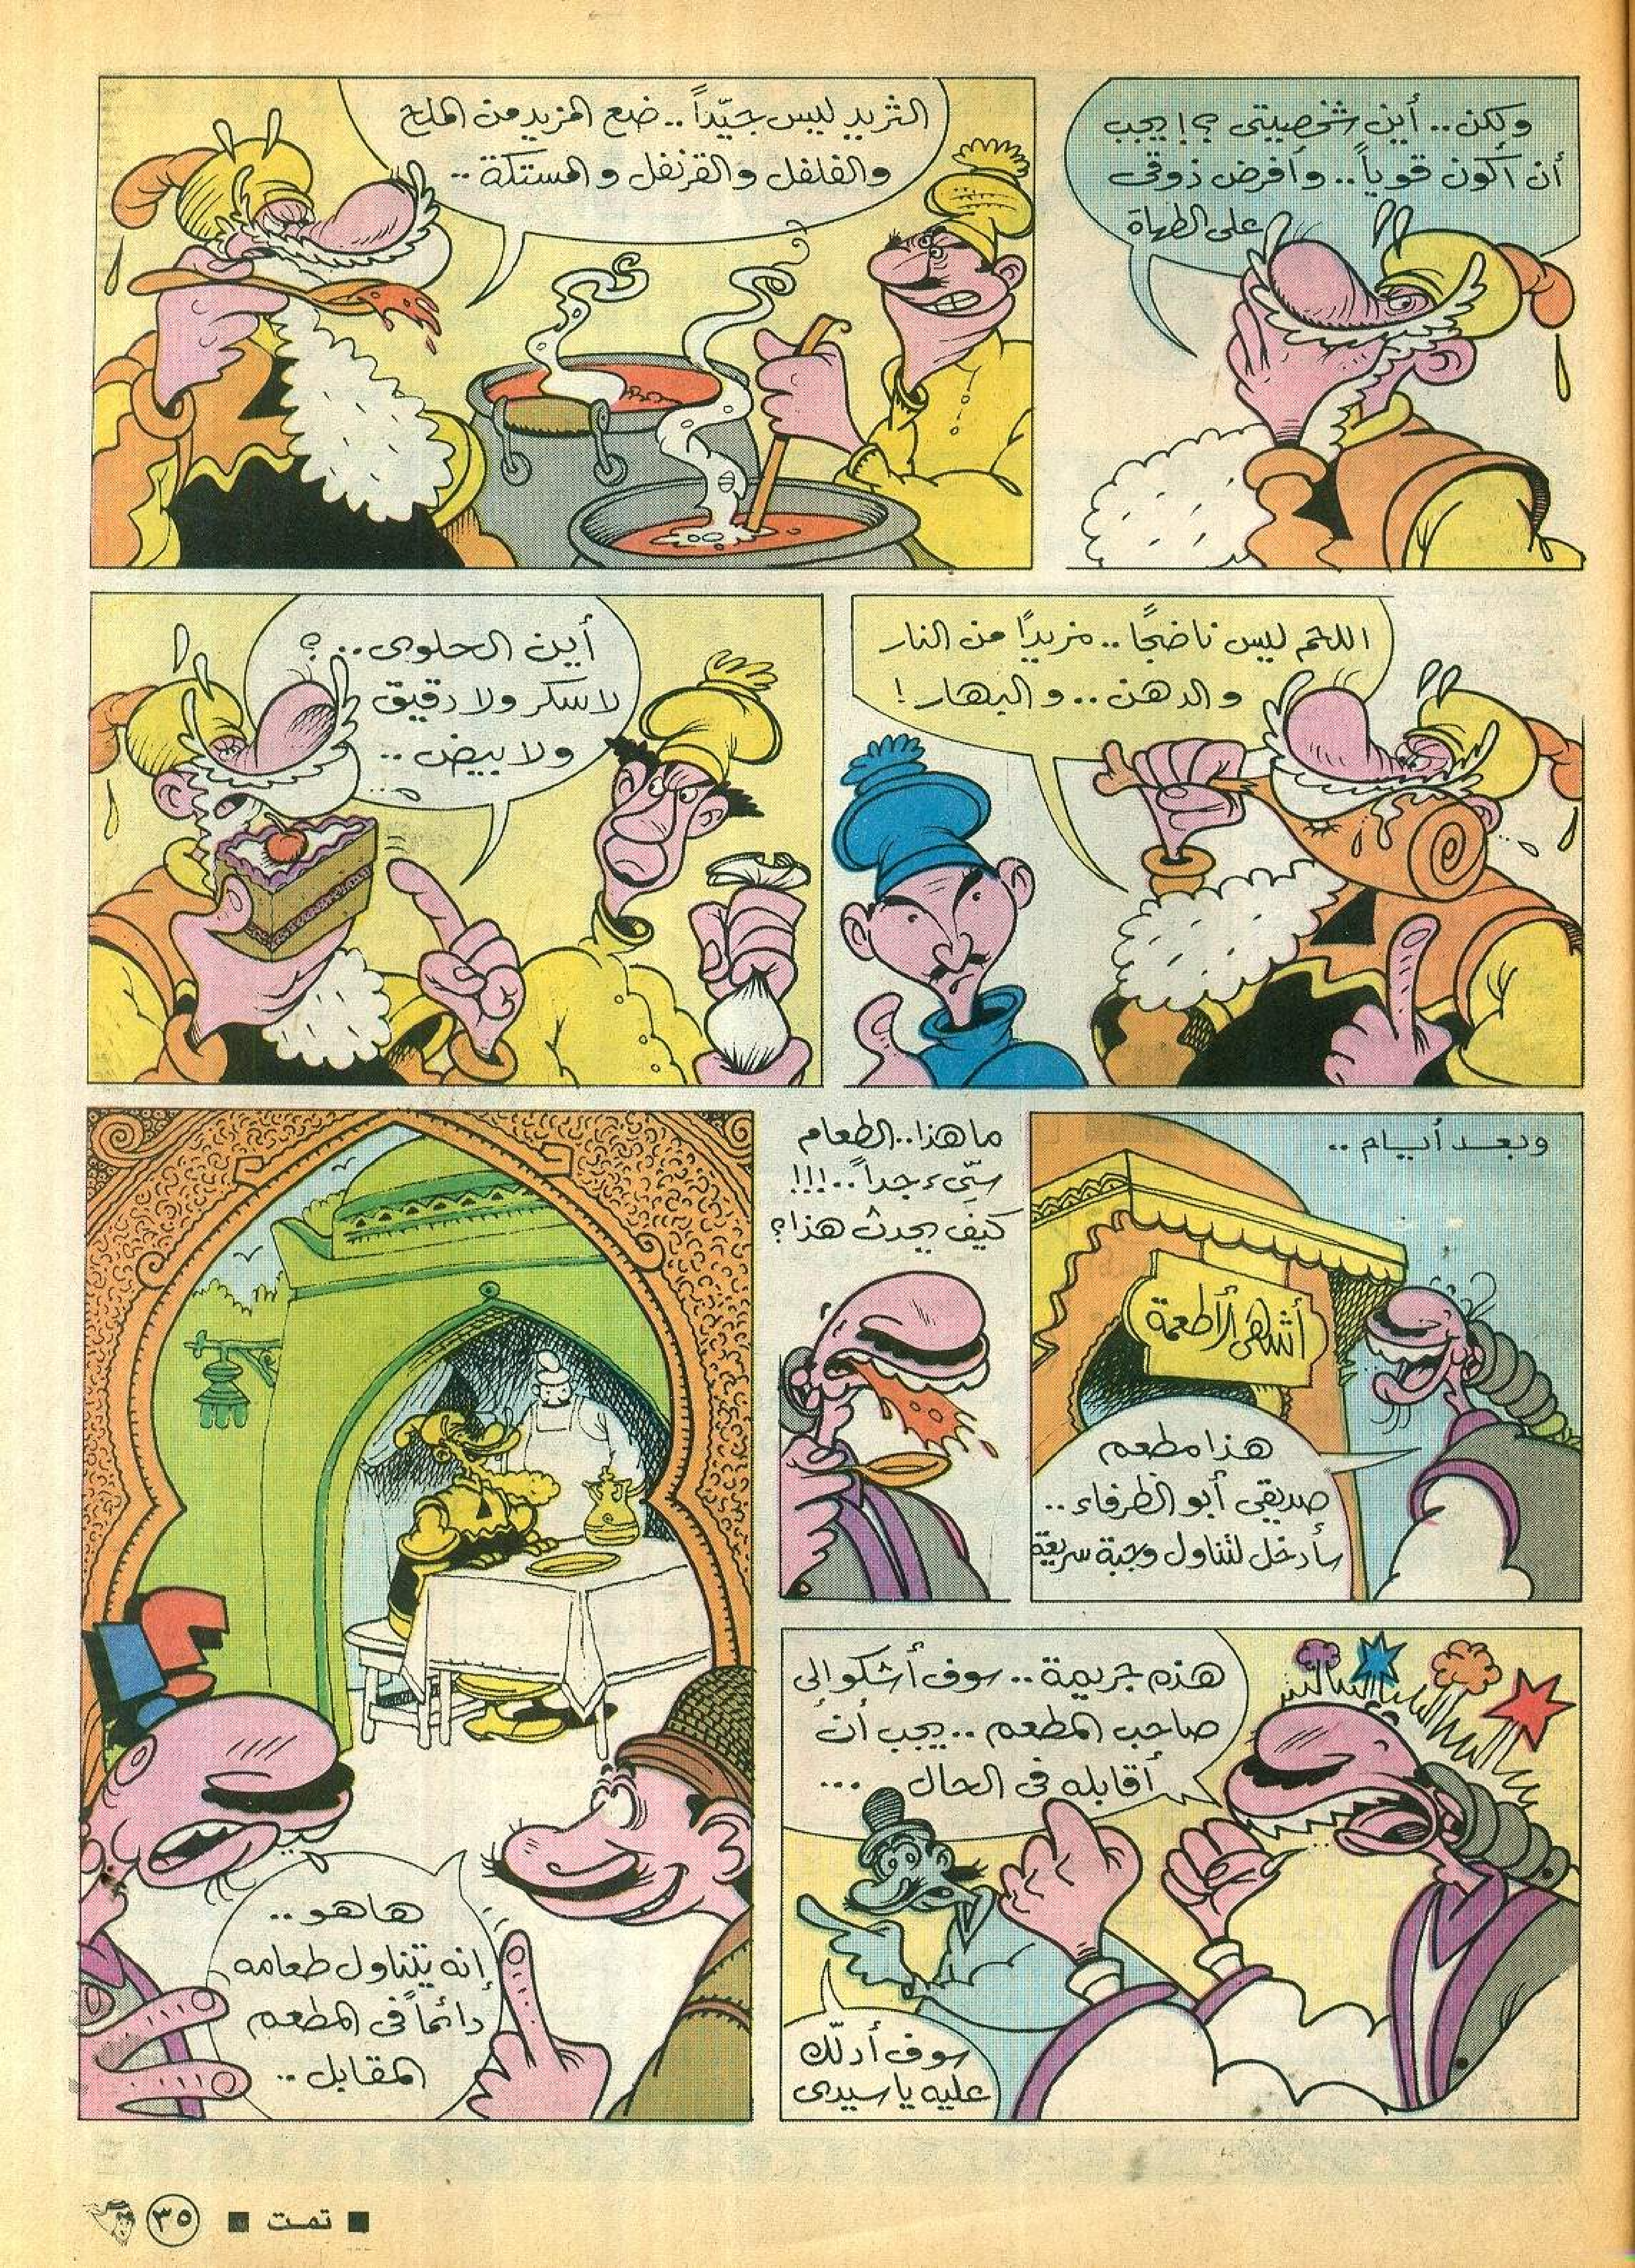 ولكن.. أين شخصيتي؟! يجب
أن أكون قوياً.. وأفرض ذوقى
على الطهاة
الثريد ليس جيّداً.. ضع المزيد من الملح
والفلفل والقرنفل والمستكة..
اللحم ليس ناضجًا.. مزيدًا من النار
والدهن.. والبهار!
أين الحلوى..؟
لا سكر ولا دقيق
ولا بيض..
وبعد أيام..
أشهى الأطعمة
هذا مطعم
صديقي أبو الظرفاء..
سأدخل لتناول وجبة سريعة
ما هذا.. الطعام
سيّىء جداً..!!!
كيف يحدث هذا؟
هذه جريمة.. سوف أشكو إلى
صاحب المطعم.. يجب أن
أقابله فى الحال...
سوف أدلّك
عليه يا سيدى
ها هو..
إنه يتناول طعامه
دائماً فى المطعم
المقابل..
■ تمت ■
٣٥